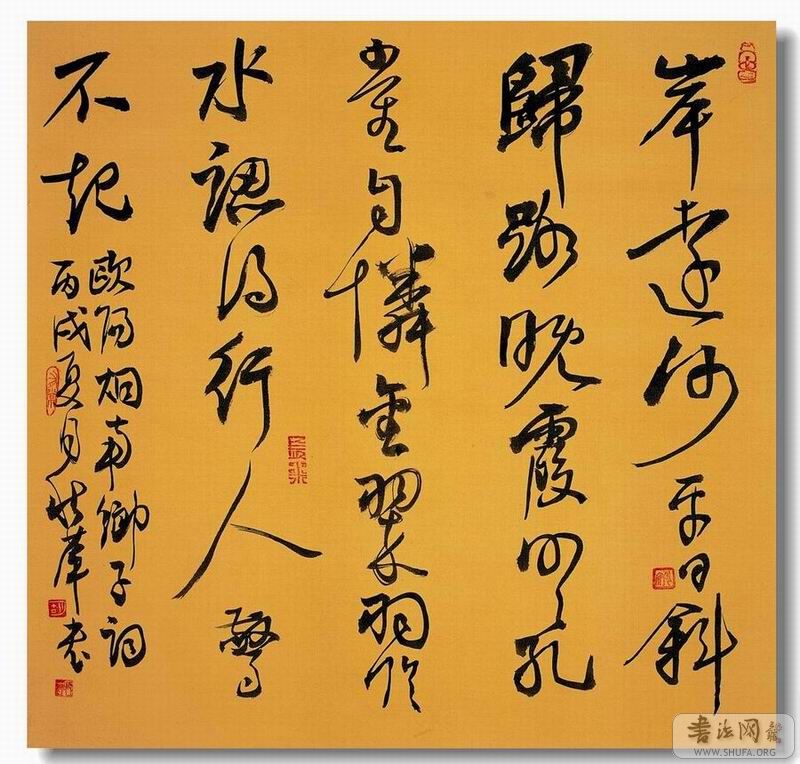 岸遠沙平日斜
歸路晚霞明孔
雀自憐金翠羽臨
水認得行人驚
不起
歐陽炯南鄉子詞
丙戌夏月
書法网
WWW.SHUFA.ORG